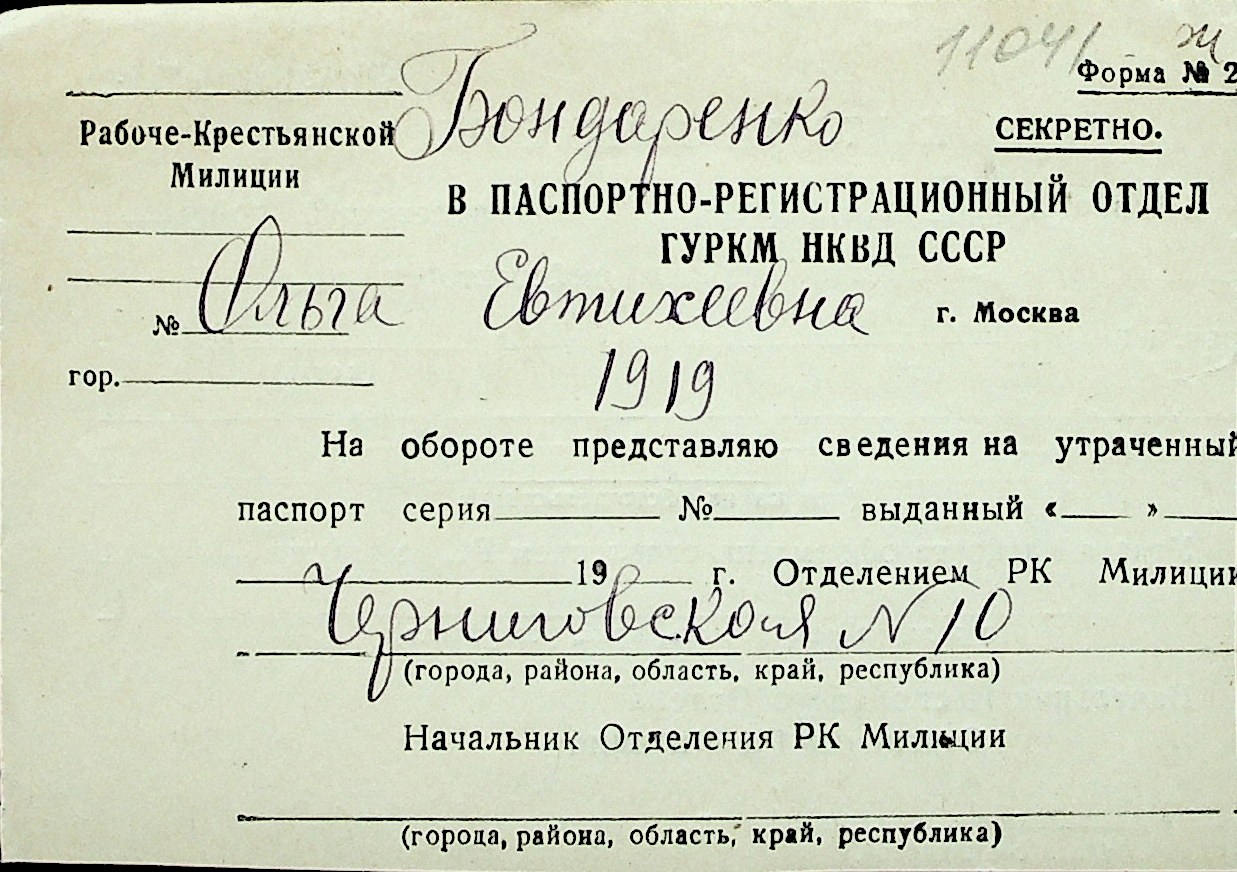 11041 ж
Форма № 2
Бондаренко
Рабоче-Крестьянской
Милиции
СЕКРЕТНО.
В ПАСПОРТНО-РЕГИСТРАЦИОННЫЙ ОТДЕЛ
ГУРКМ НКВД СССР
№ Ольга Евтихеевна г. Москва
гор.
1919
На обороте представляю сведения на утраченный
паспорт серия № выданный « »
19 г. Отделением РК Милиции
Черниговская N 10
(города, района, область, край, республика)
Начальник Отделения РК Милиции
(города, района, область, край, республика)